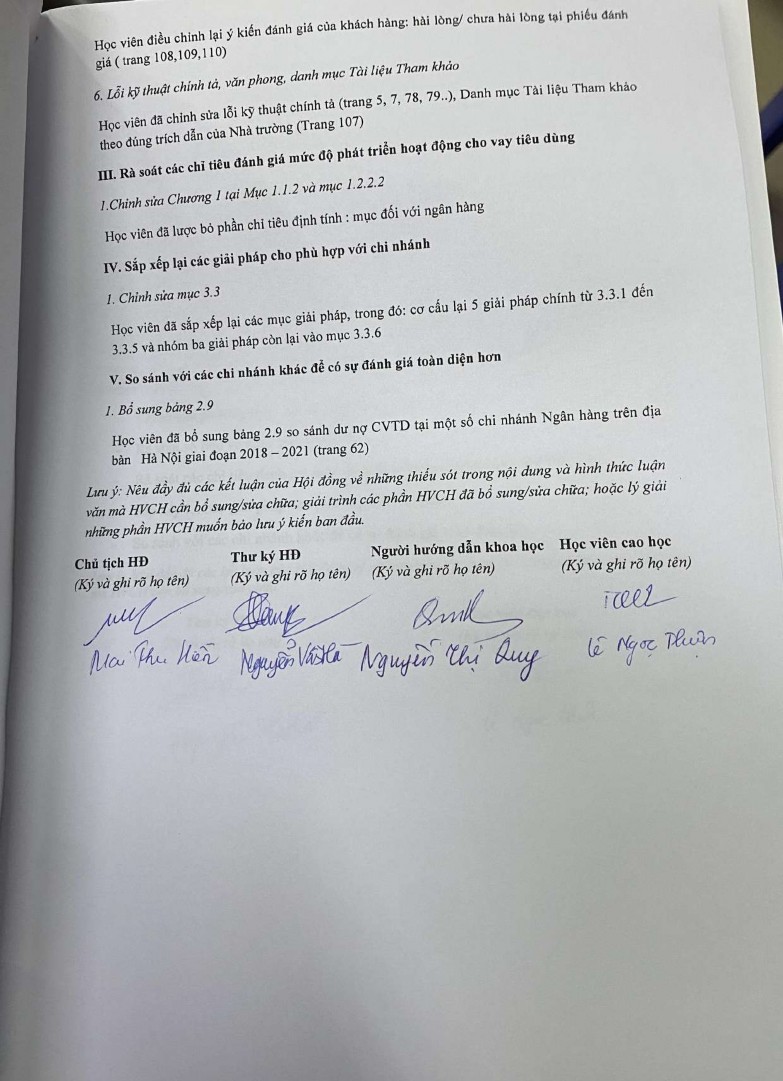 Học viên điều chỉnh lại ý kiến đánh giá của khách hàng: hài lòng/ chưa hài lòng tại phiếu đánh
giá ( trang 108,109,110)
6. Lỗi kỹ thuật chính tả, văn phong, danh mục Tài liệu Tham khảo
Học viên đã chỉnh sửa lỗi kỹ thuật chính tả (trang 5, 7, 78, 79..), Danh mục Tài liệu Tham khảo
theo đúng trích dẫn của Nhà trường (Trang 107)
III. Rà soát các chỉ tiêu đánh giá mức độ phát triển hoạt động cho vay tiêu dùng
1.Chỉnh sửa Chương 1 tại Mục 1.1.2 và mục 1.2.2.2
Học viên đã lược bỏ phần chỉ tiêu định tính : mục đối với ngân hàng
IV. Sắp xếp lại các giải pháp cho phù hợp với chi nhánh
1. Chỉnh sửa mục 3.3
Học viên đã sắp xếp lại các mục giải pháp, trong đó: cơ cấu lại 5 giải pháp chính từ 3.3.1 đến
3.3.5 và nhóm ba giải pháp còn lại vào mục 3.3.6
V. So sánh với các chi nhánh khác để có sự đánh giá toàn diện hơn
1. Bổ sung bảng 2.9
Học viên đã bổ sung bảng 2.9 so sánh dư nợ CVTD tại một số chi nhánh Ngân hàng trên địa
bàn Hà Nội giai đoạn 2018 – 2021 (trang 62)
Lưu ý: Nêu đầy đủ các kết luận của Hội đồng về những thiếu sót trong nội dung và hình thức luận
văn mà HVCH cần bổ sung/sửa chữa; giải trình các phần HVCH đã bổ sung/sửa chữa; hoặc lý giải
những phần HVCH muốn bảo lưu ý kiến ban đầu.
Chủ tịch HĐ Thư ký HĐ Người hướng dẫn khoa học Học viên cao học
(Ký và ghi rõ họ tên) (Ký và ghi rõ họ tên) (Ký và ghi rõ họ tên) (Ký và ghi rõ họ tên)
Mai Thu Hiền Nguyễn Hà Nguyễn Thị Quy Lê Ngọc